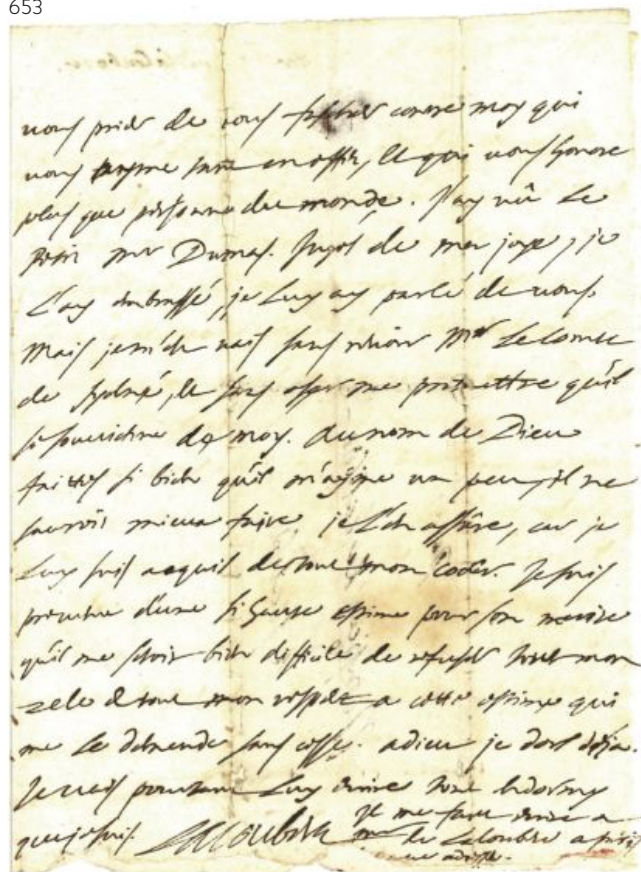 653
vous prier de vous fascher contre moy qui
vous ayme tant en effet, et qui vous honore
plus que personne du monde. J'ay vû le
petit mr Dumas. Jugés de ma joye, je
l'ay embrassé, je luy ay parlé de vous.
Mais je m'en vais sans revoir Mr le Comte
de et sans oser me promettre qu'il
se souvienne de moy. Au nom de Dieu
faittes si bien qu'il m'ayme un peu, il ne
sauroit mieux faire je l'en assûre, car je
luy suis acquis de tout mon coeur. Je suis
prevenu d'une si haute estime pour son merite
qu'il me seroit bien difficile de refuser tout mon
zele et tout mon respect a cette estime qui
me le demande sans cesse. adieu je dors déja.
Je vais pourtant luy écrire tout endormy
que je suis. Laloubere il me faut écrire a
mr de Laloubere a paris